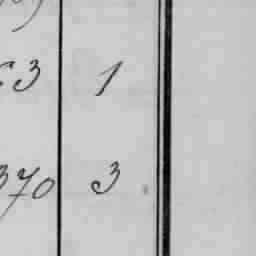 3 1
370 3